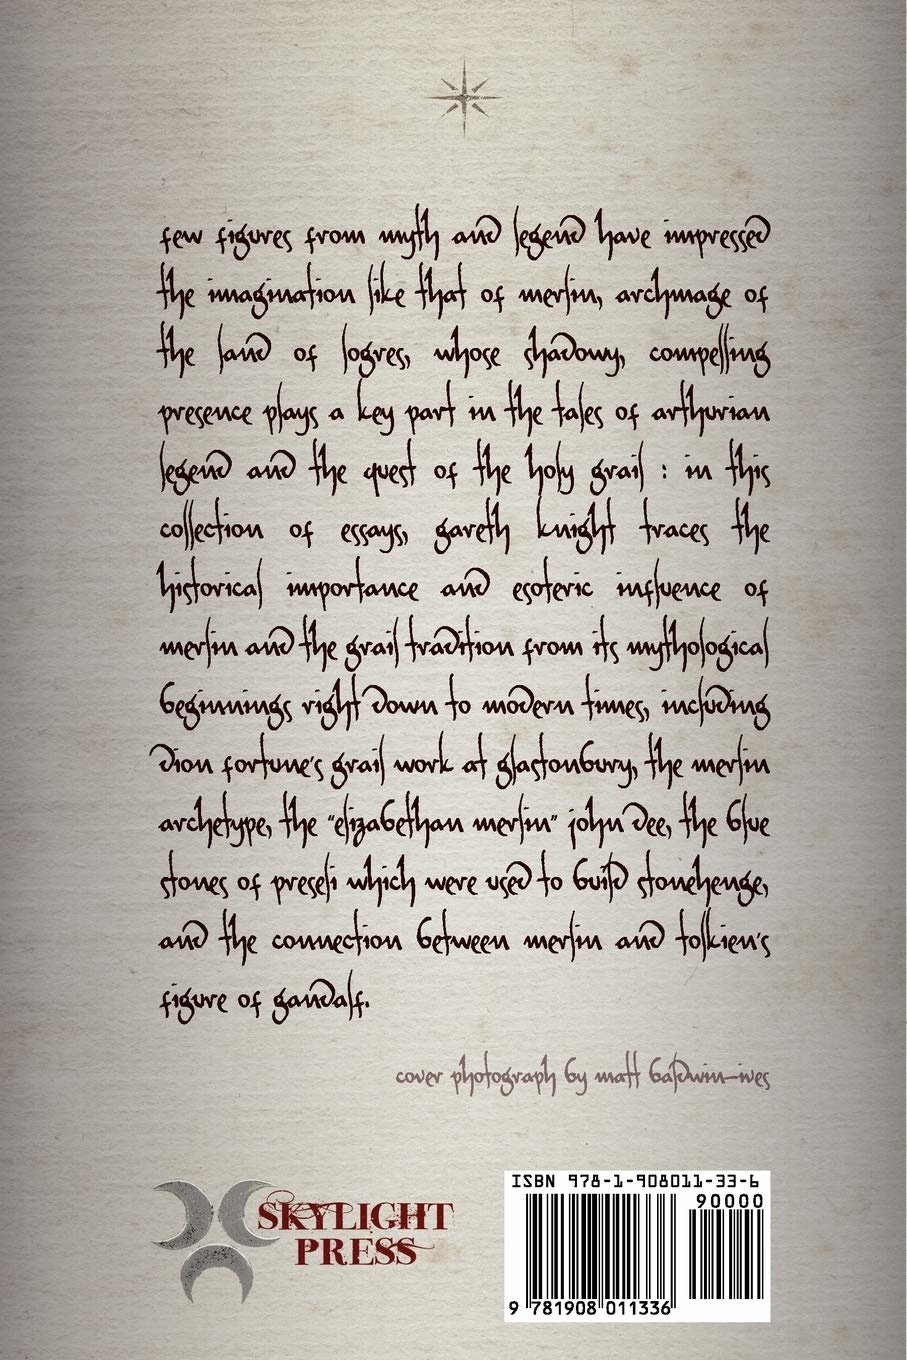 few figures from myth and legend have impressed
the imagination like that of merlin, archmage of
the land of logres, whose shadowy, compelling
presence plays a key part in the tales of arthurian
legend and the quest of the holy grail : in this
collection of essays, gareth knight traces the
historical importance and esoteric influence of
merlin and the grail tradition from its mythological
beginnings right down to modern times, including
dion fortune's grail work at glastonbury, the merlin
archetype, the "elizabethan merlin" john dee, the blue
stones of preseli which were used to build stonehenge,
and the connection between merlin and tolkien's
figure of gandalf.
cover photograph by matt baldwin-ives
SKYLIGHT
PRESS
ISBN 978-1-908011-33-6
90000
9 781908 011336